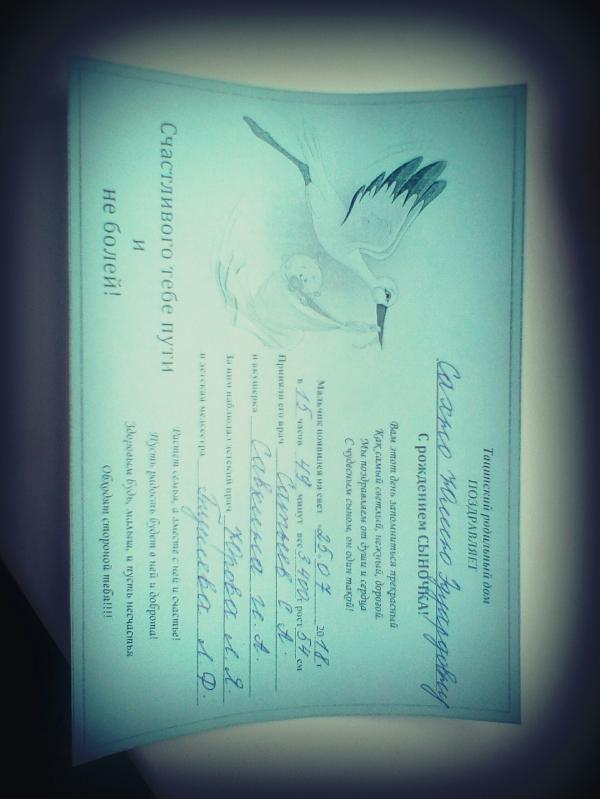 Тацинский родильный дом
ПОЗДРАВЛЯЕТ
Сахно Юлию
С рождением СЫНОЧКА!
Вам этот день запомниться прекрасный
Как самый светлый, нежный, дорогой.
Мы поздравляем от души и сердца
С чудесным сыном, он один такой!
Мальчик появился на свет 25.07 2018 г
в 15 часов 49 минут вес 3400 рост 54 см
Приняли его врач С А.
и акушерка Савкина А.
За ним наблюдал детский врач Юрова Л. Я.
и детская медсестра Л. Ф.
Счастливого тебе пути
и
не болей!
Растет семья, а вместе с ней и счастье!
Пусть радость будет в ней и доброта!
Здоровым будь, малыш, и пусть несчастья
Обходят стороной тебя!!!!